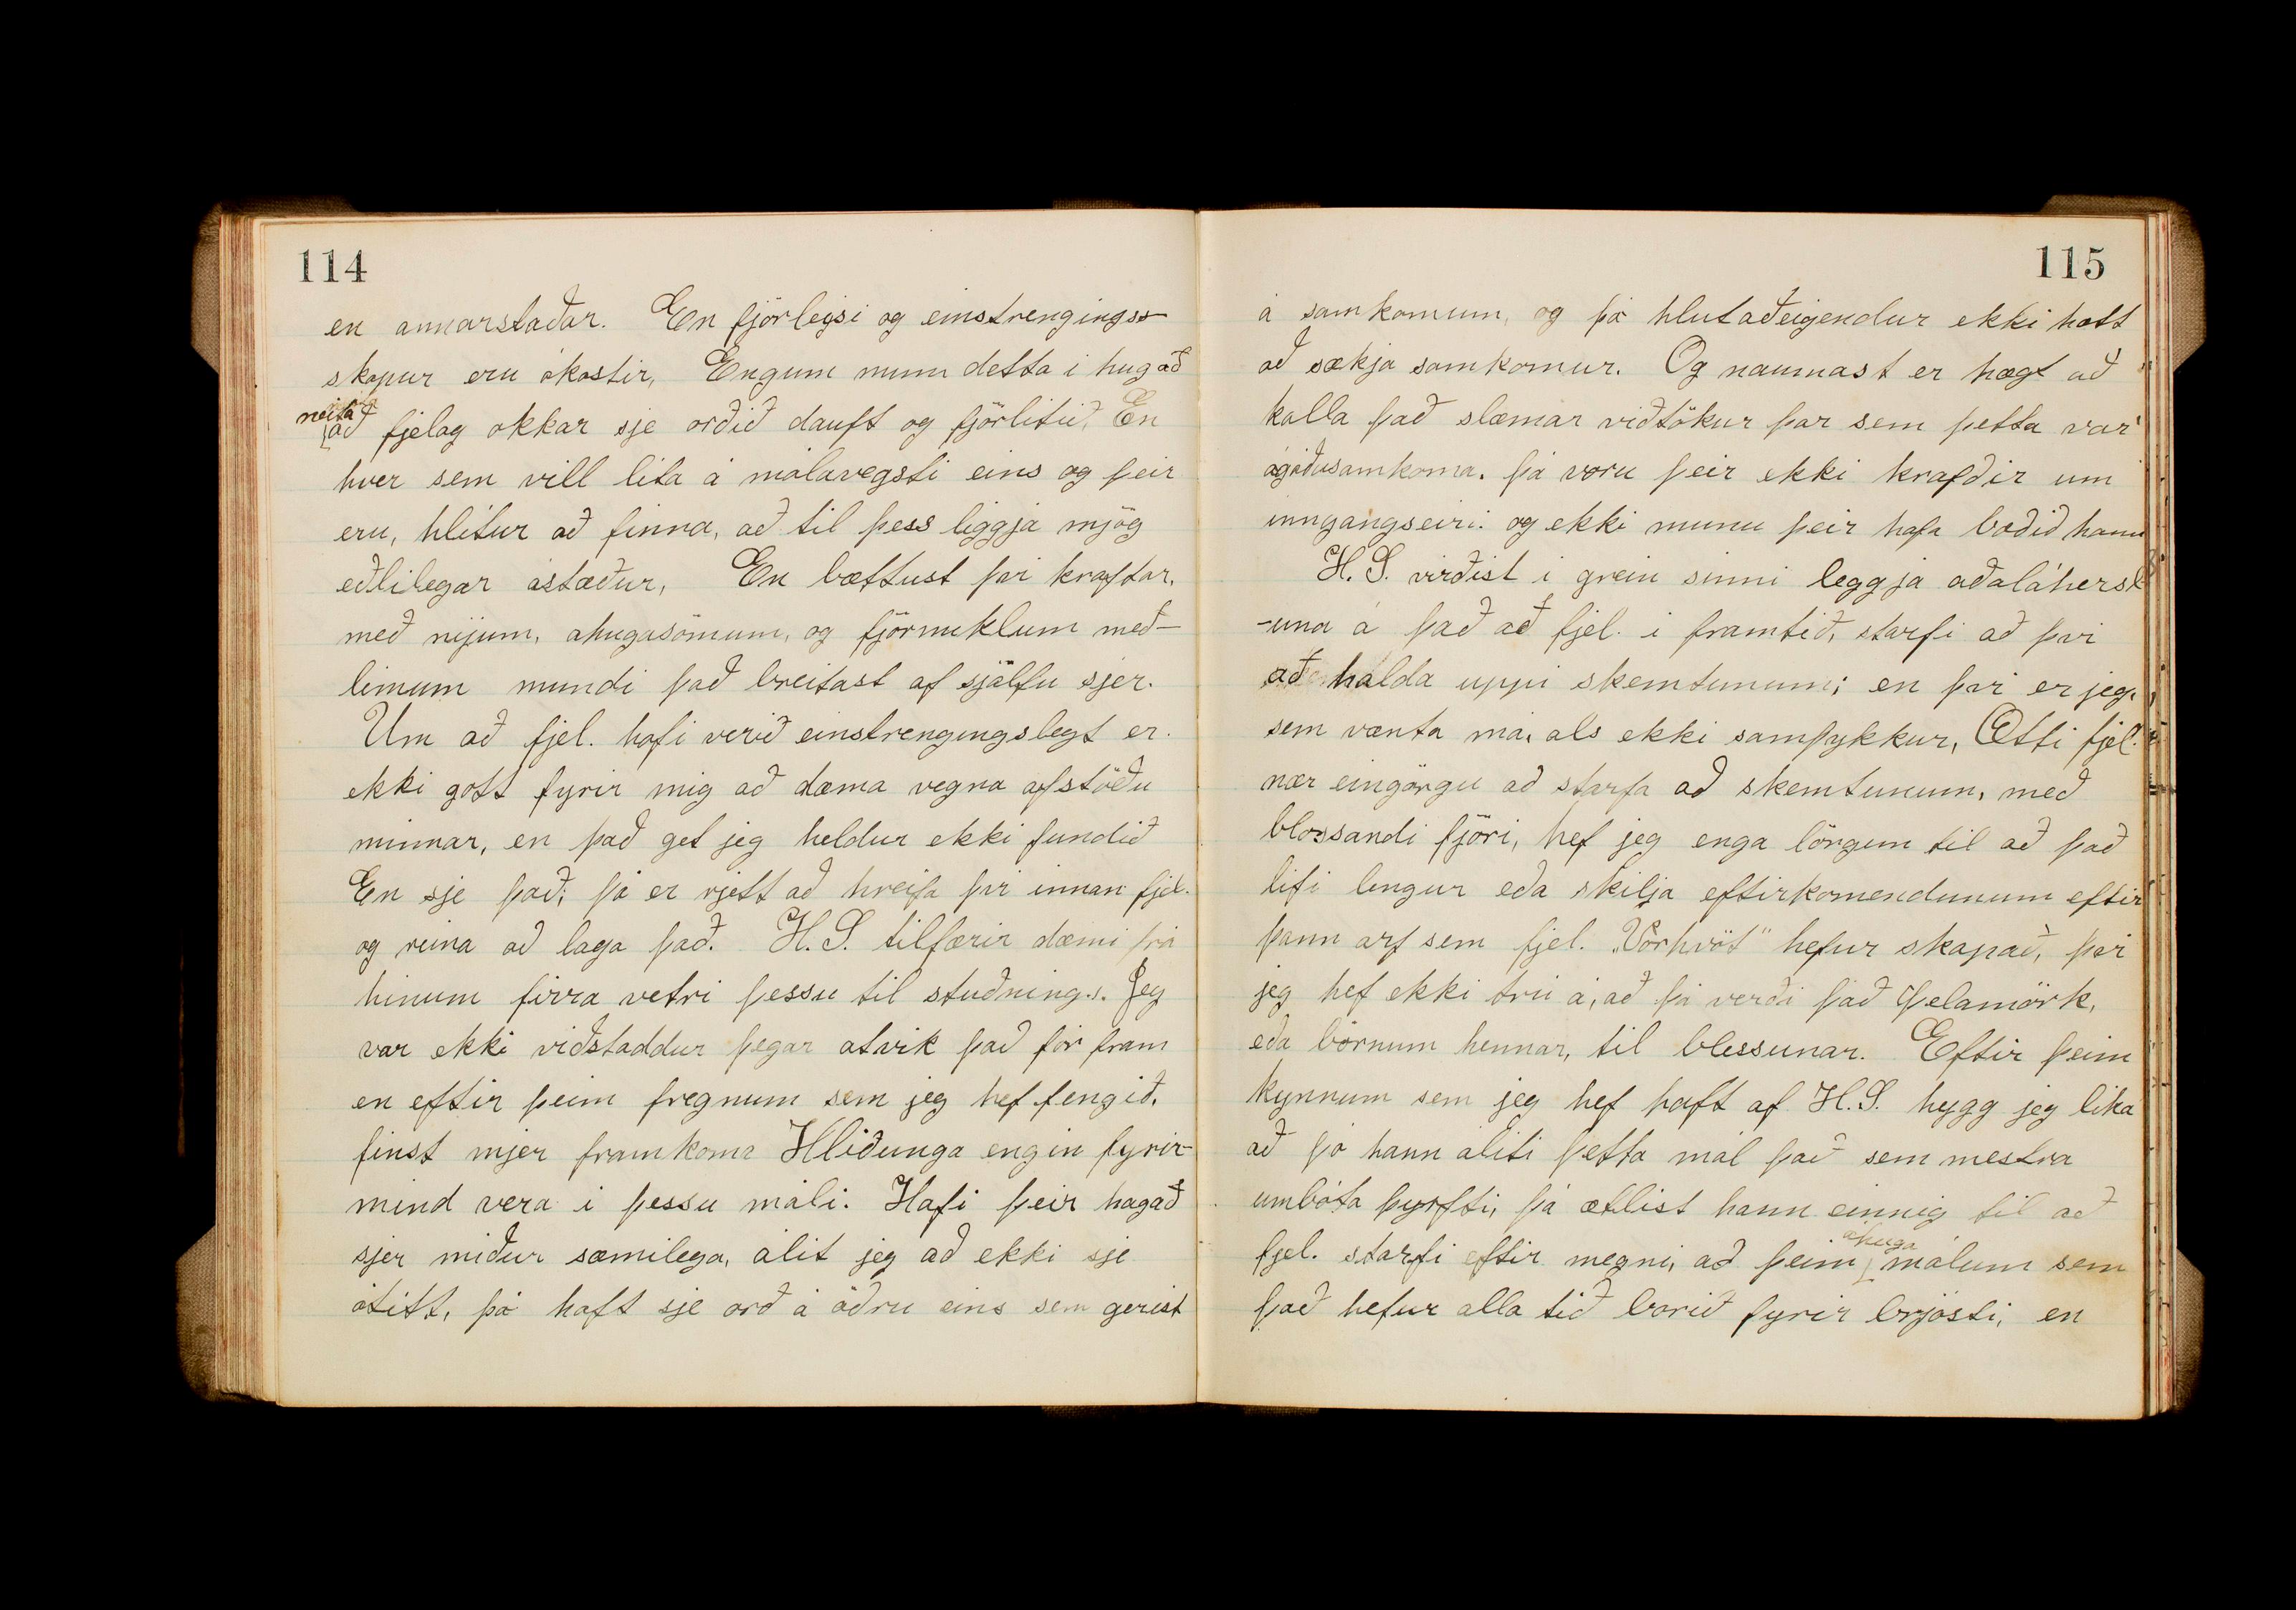 114
en annarstaðar. En fjörleysi og einstrengings-
skapur eru ókostir, Engum mun detta i hug að
neita
að fjelag okkar sje orðið dauft og fjörlitið, En
hver sem vill lita á málavegsti eins og þeir
eru, hlítur að finna, að til þess liggja mjög
eðlilegar ástæður, En bættust þvi kraftar,
með nijum, ahugasömum, og fjörmiklum með-
limum mundi það breitast af sjálfu sjer.
Um að fjel. hafi verið einstrengingslegt er
ekki gott fyrir mig að dæma vegna afstöðu
minnar, en það get jeg heldur ekki fundið
En sje það; þá er rjett að hreifa þvi innan fjel.
og reina að laga það. H.S. tilfærir dæmi frá
hinum firra vetri þessu til stuðnings. Jeg
var ekki viðstaddur þegar atvik það fór fram
en eftir þeim fregnum sem jeg hef fengið,
finst mjer framkoma Hliðunga engin fyrir-
mind vera i þessu máli. Hafi þeir hagað
sjer miður sæmilega, álit jeg að ekki sje
ótitt, þó haft sje orð á öðru eins sem gerist
115
á samkomum, og þó hlutaðeigendur ekki hætt
að sækja samkomur. Og naumast er hægt að
kalla það slæmar viðtökur þar sem þetta var
ágóðusamkoma. þá voru þeir ekki krafðir um
inngangseiri: og ekki munu þeir hafa boðið hann
H.S. virðist i grein sinni leggja aðaláhersl
-una á það að fjel. i framtið, starfi að þvi
að halda uppi skemtunum; en þvi er jeg,
sem vænta má, als ekki samþykkur, Ætti fjel.
nær eingörgu að starfa að skemtunum, með
blossandi fjöri, hef jeg enga löngun til að það
lifi lengur eða skilja eftirkomendunum eftir
þann arf sem fjel. „Vorhvöt" hefur skapað, þvi
jeg hef ekki trú á, að þá verði það Þelamörk,
eða börnum hennar, til blessunar. Eftir þeim
kynnum sem jeg hef haft af H.S. hygg jeg lika
að þó hann áliti þetta mál það sem mestra
umbóta þyrfti, þá ætlist hann einnig til að
áhuga
fjel. starfi eftir megni, að þeim málum sem
það hefur alla tið borið fyrir brjósti; en